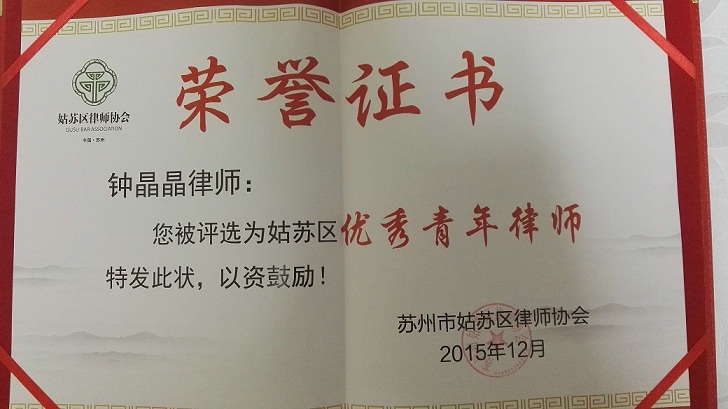 姑苏区律师协会
GUSU BAR ASSOCIATION
中国·苏州
荣誉证书
钟晶晶律师：
您被评选为姑苏区优秀青年律师
特发此状，以资鼓励！
苏州市姑苏区律师协会
2015年12月